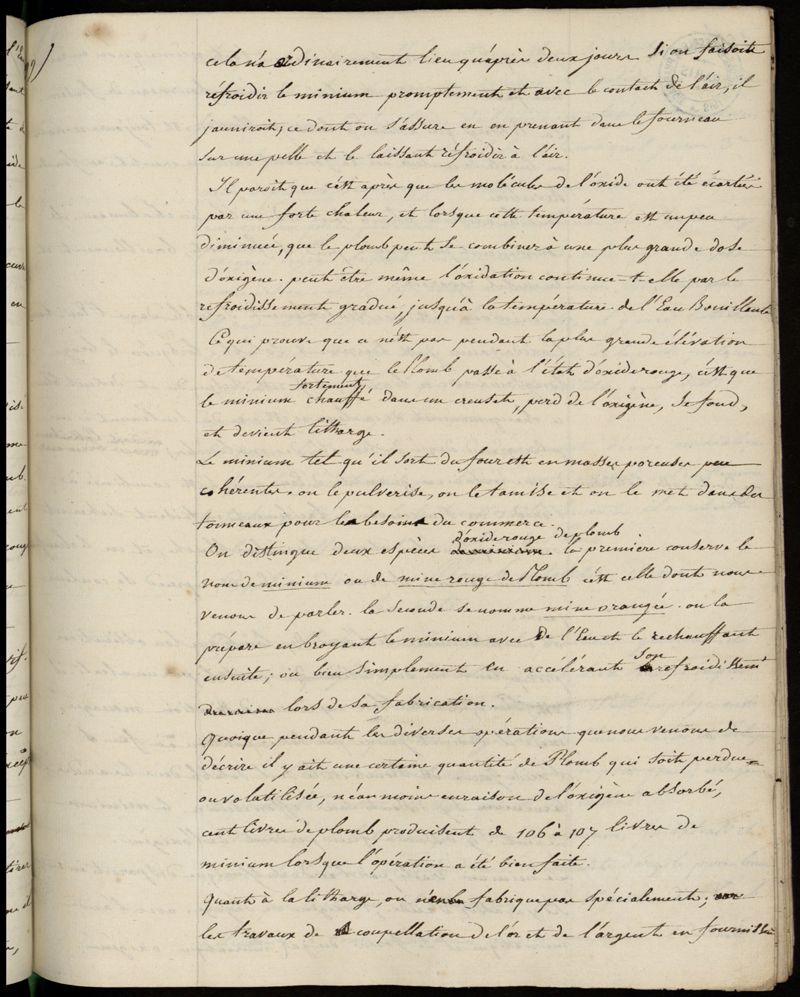 cela n'a ordinairement lieu qu'après deux jours si on faisoit
réfroidir le minium promptement et avec le contact de l'air, il
jauniroit; ce dont on s'assure en en prenant dans le fourneau
sur une pelle et le laissant réfroidir à l'air.
Il paroit que c'est après que les molécules de l'oxide ont été écartées
par une forte chaleur, et lorsque cette température est un peu
diminuée, que le plomb peut se combiner à une plus grande dose
d'oxigène. peut être même l'oxidation continue-t-elle par le
refroidissement gradué, jusqu'à la température de l'Eau Bouillante
Ce qui prouve que ce n'est pas pendant la plus grande élévation
de température que le Plomb passe à l'état d'oxide rouge, c'est que
le minium fortement chauffé dans un creuset, perd de l'oxigène, se fond,
et devient litharge.
Le minium tel qu'il sort du four est en masses poreuses peu
cohérentes. on le pulverise, on le tamise et on le met dans des
tonneaux pour le besoin du commerce.
On distingue deux espèces d'oxide rouge de plomb. la première conserve le
nom de minium ou de mine rouge de Plomb c'est celle dont nous
venons de parler. la seconde se nomme mine orangée. on la
prépare en broyant le minium avec de l'Eau et le rechauffant
ensuite; ou bien simplement en accélérant son refroidissemt
lors de sa fabrication.
Quoique pendant les diverses opérations que nous venons de
décrire il y ait une certaine quantité de Plomb qui soit perdue
ou volatilisée, néanmoins en raison de l'oxigène absorbé,
cent livres de plomb produisent de 106 à 107 livres de
minium lorsque l'opération a été bien faite.
Quant à la litharge, on n'en fabrique pas spécialement;
les travaux de coupellation de l'or et de l'argent en fournissent